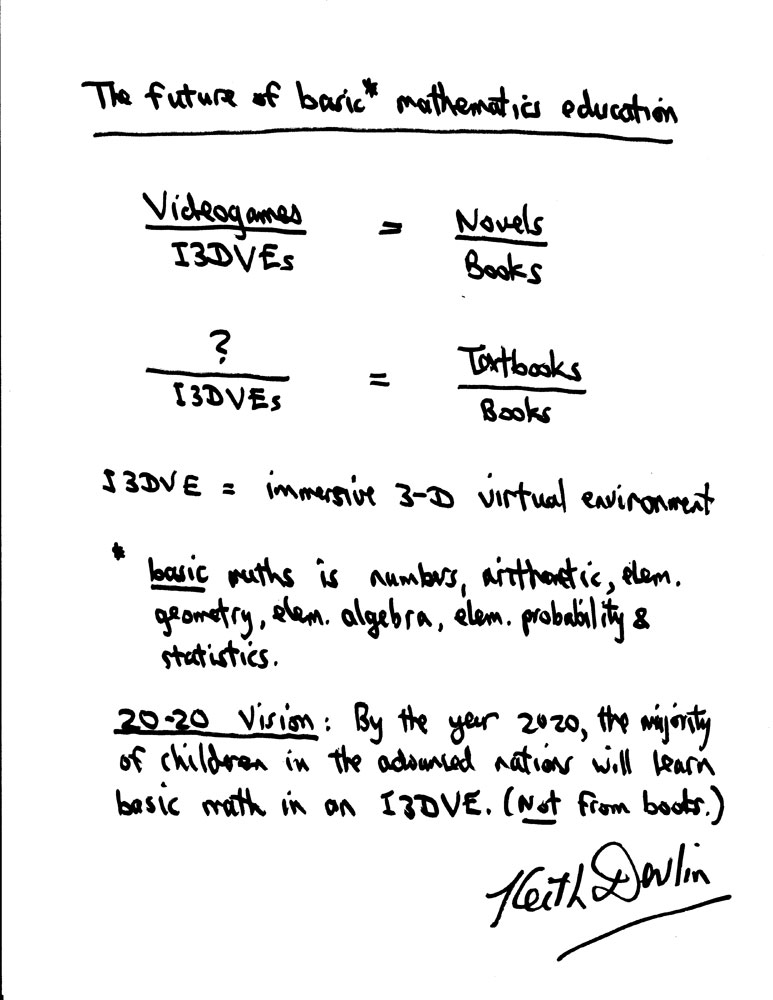 The future of basic* mathematics education
Videogames = Novels
I3DVEs Books
? = Textbooks
I3DVEs Books
I3DVE = immersive 3-D virtual environment
* basic maths is numbers, arithmetic, elem.
geometry, elem. algebra, elem. probability &
statistics.
20-20 Vision: By the year 2020, the majority
of children in the advanced nations will learn
basic math in an I3DVE. (Not from books.)
Keith Devlin